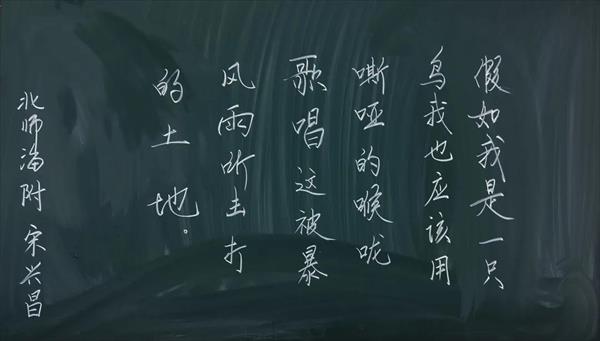 假如我是一只
鸟我也应该用
嘶哑的喉咙
歌唱这被暴
风雨所击打
的土地。
北师淄附宋兴昌